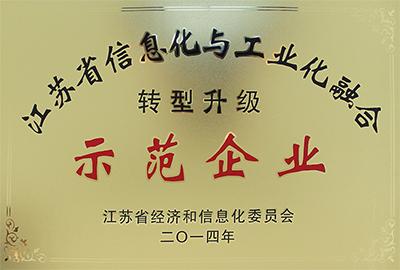 江苏省信息化与工业化融合
转型升级
示范企业
江苏省经济和信息化委员会
二〇一四年